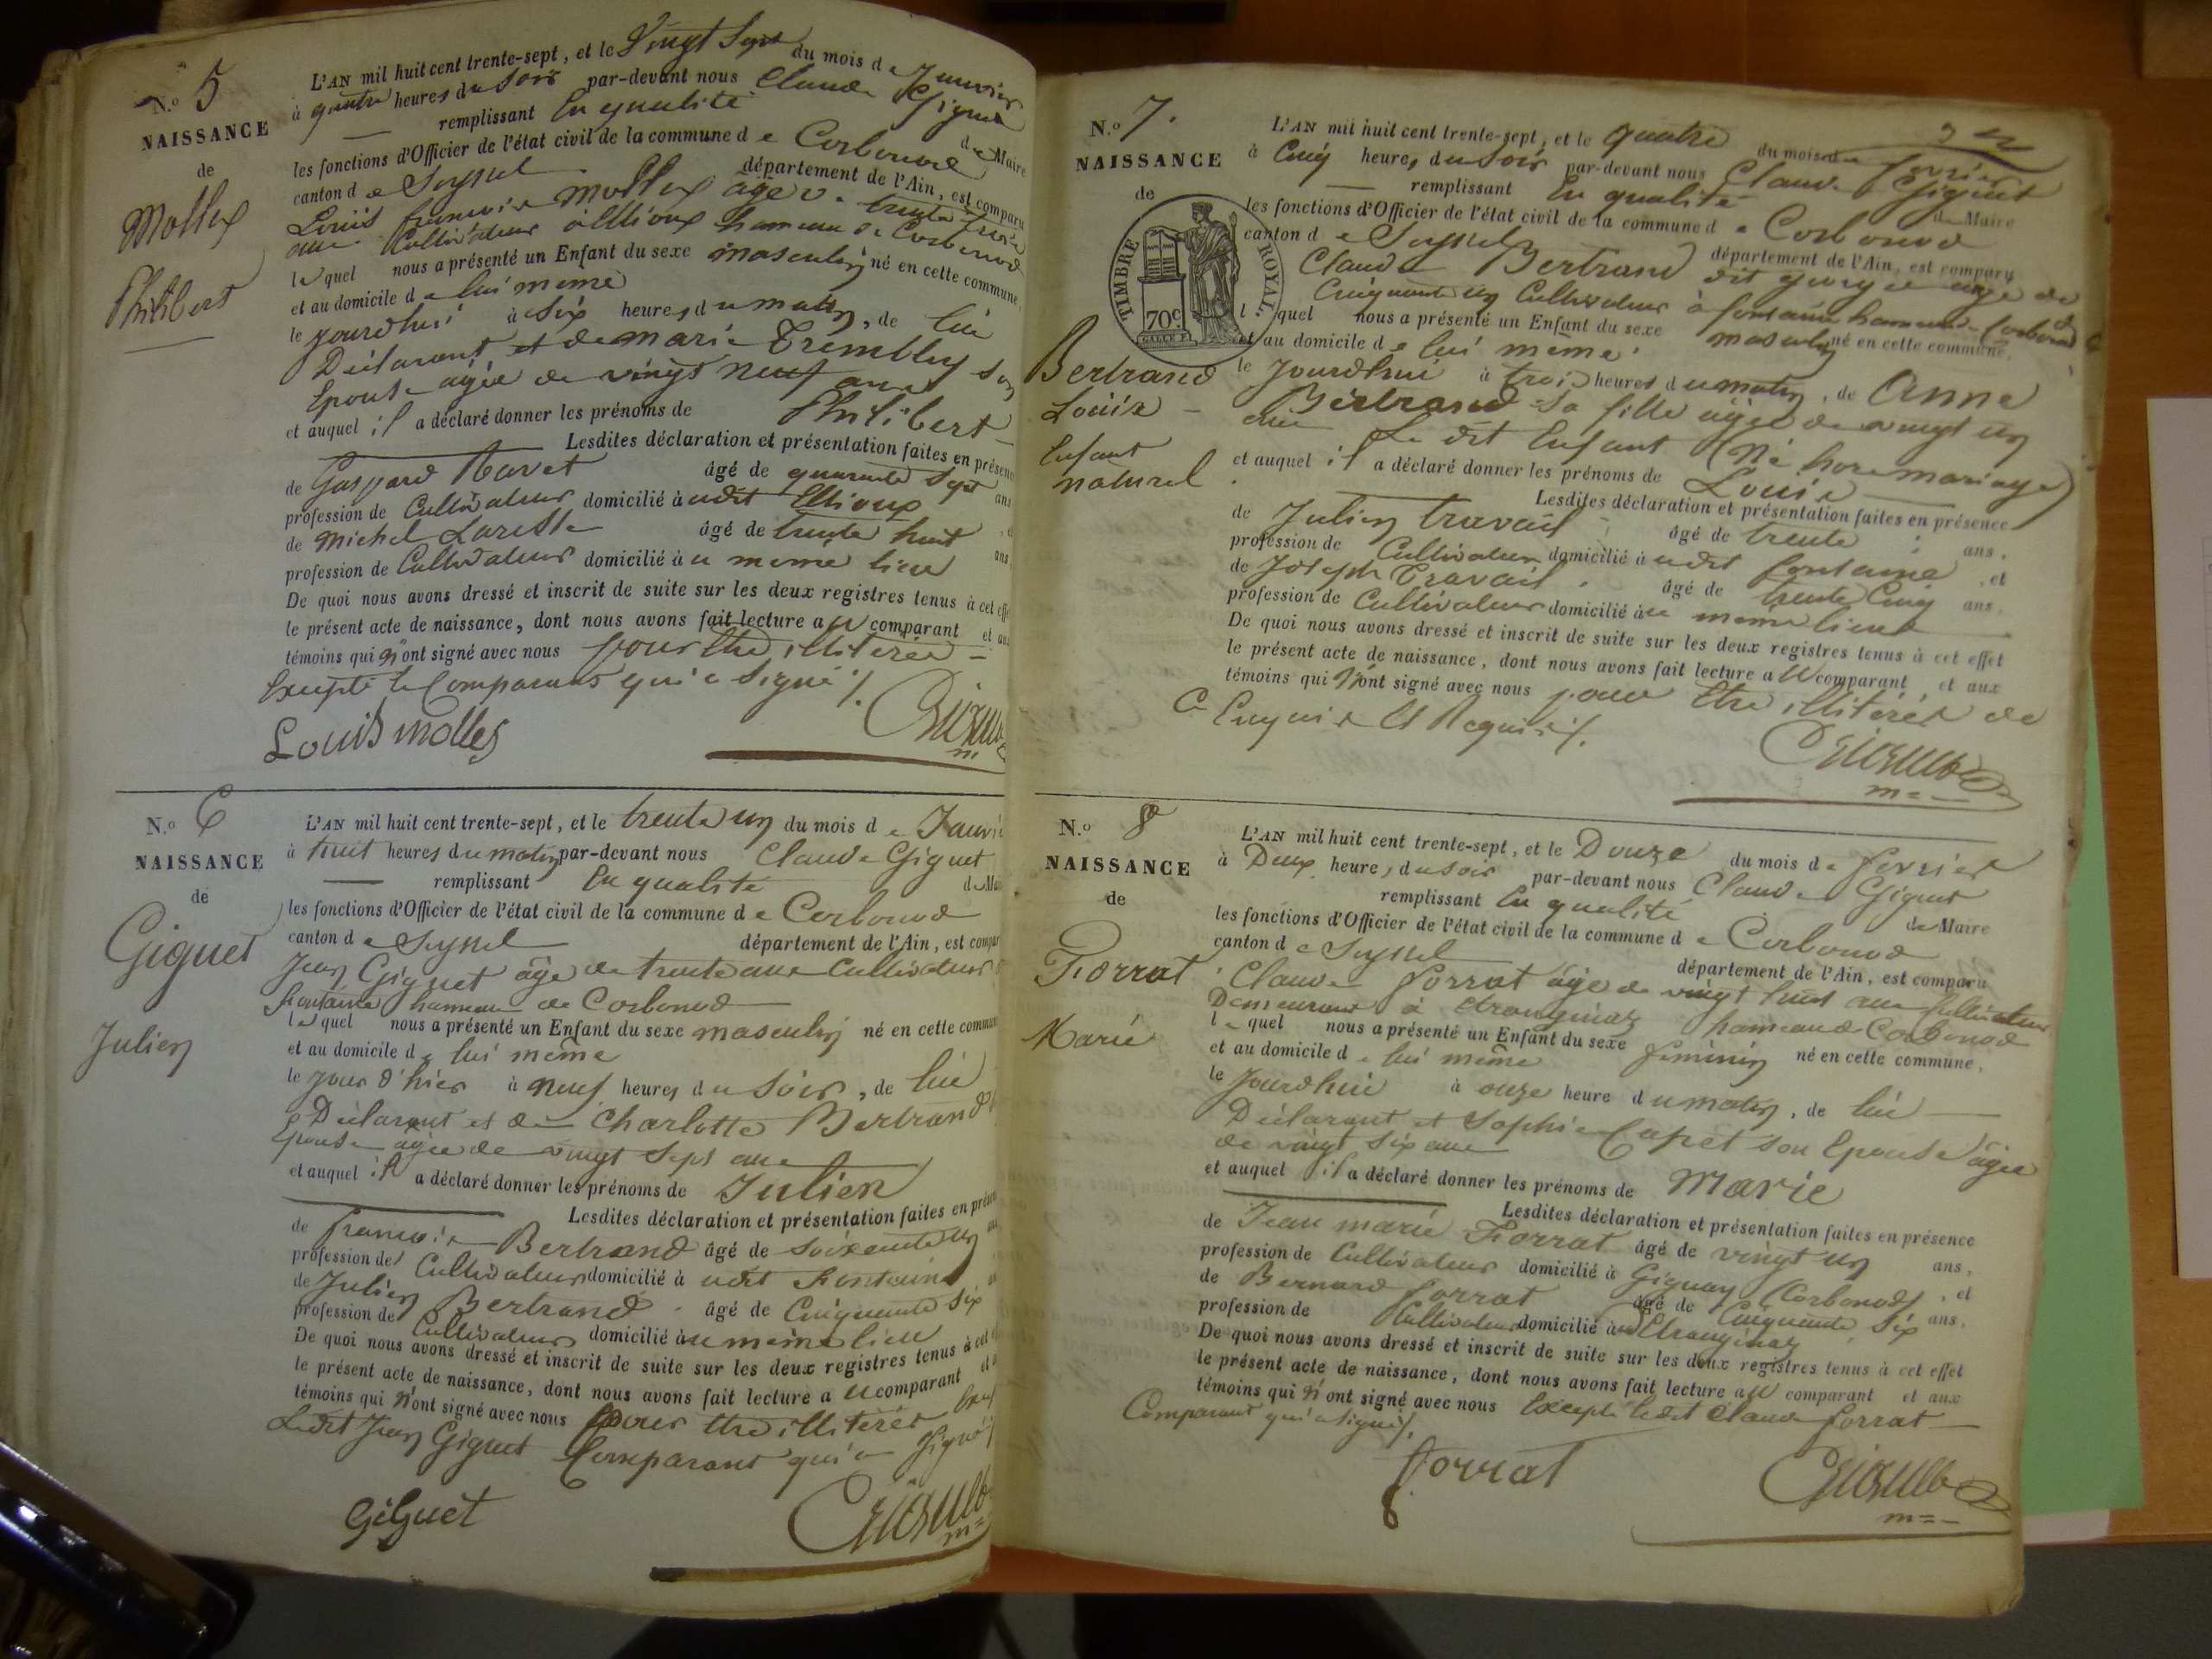 N.º 5
NAISSANCE
de
Mollex
Philibert
L'AN mil huit cent trente-sept, et le Vingt Sept du mois de Janvier
à quatre heures du soir par-devant nous Claude Giguet
remplissant En qualité de Maire
les fonctions d'Officier de l'état civil de la commune de Corbonod
canton de Seyssel département de l'Ain, est comparu
Louis françois Mollex âgé de trente trois
ans Cultivateur à Eilloux hameau de Corbonod
lequel nous a présenté un Enfant du sexe masculin né en cette commune,
et au domicile de lui même
le jourdhui à Six heures du matin, de lui
Déclarant et de marie Trembley son
Epouse agée de vingt neuf ans
et auquel il a déclaré donner les prénoms de Philibert
Lesdites déclaration et présentation faites en présence
de Gaspard Ravet âgé de quarante Sept ans
profession de Cultivateur domicilié à udit
de Michel âgé de trente huit ans
profession de Cultivateur domicilié à u meme lieu
De quoi nous avons dressé et inscrit de suite sur les deux registres tenus à cet effet
le présent acte de naissance, dont nous avons fait lecture au comparant et aux
témoins qui n'ont signé avec nous pour Etre illiterés
Excepté le Comparant qui a Signé /.
Louis mollex
Giguet
m
N.º 6
NAISSANCE
de
Giguet
Julien
L'AN mil huit cent trente-sept, et le trente un du mois de Janvier
à huit heures du matin par-devant nous Claude Giguet
remplissant En qualité de Maire
les fonctions d'Officier de l'état civil de la commune de Corbonod
canton de Seyssel département de l'Ain, est comparu
Jean Giguet âgé de trente ans Cultivateur
fontaine hameau de Corbonod
lequel nous a présenté un Enfant du sexe masculin né en cette commune
et au domicile de lui même
le jour d'hier à neuf heures du Soir, de lui
Déclarant et de Charlotte Bertrand
Epouse agée de vingt Sept ans
et auquel il a déclaré donner les prénoms de Julien
Lesdites déclaration et présentation faites en présence
de françois Bertrand âgé de Soixante un
profession de Cultivateur domicilié à udit Fontaine
de Julien Bertrand âgé de Cinquante Six
profession de Cultivateur domicilié à u même lieu
De quoi nous avons dressé et inscrit de suite sur les deux registres tenus à cet
le présent acte de naissance, dont nous avons fait lecture au comparant et
témoins qui n'ont signé avec nous pour Etre illiterés
Ledit Jean Giguet Comparant qui a Signé /
GiGuet
Giguet
m
N.º 7.
NAISSANCE
de
TIMBRE ROYAL.
70c.
Bertrand
Louis
Enfant
naturel
L'AN mil huit cent trente-sept, et le quatre du mois de fevrier
à Cinq heures du Soir par-devant nous Claude Giguet
remplissant En qualité de Maire
les fonctions d'Officier de l'état civil de la commune de Corbonod
canton de Seyssel département de l'Ain, est comparu
Claude Bertrand dit agé de
Cinquante un Cultivateur à fontaine hameau de Corbonod
lequel nous a présenté un Enfant du sexe masculin né en cette commune,
et au domicile de lui même
le jourdhui à trois heures du matin, de Anne
Bertrand sa fille agée de vingt un
ans Le dit Enfant (Né hors mariage)
et auquel il a déclaré donner les prénoms de Louis
Lesdites déclaration et présentation faites en présence
de Julien travail âgé de trente ans.
profession de Cultivateur domicilié à udit fontaine, et
de Joseph Travail âgé de trente Cinq ans.
profession de Cultivateur domicilié à u meme lieu
De quoi nous avons dressé et inscrit de suite sur les deux registres tenus à cet effet
le présent acte de naissance, dont nous avons fait lecture au comparant, et aux
témoins qui n'ont signé avec nous pour Etre illiterés de
Ce Enquis Et Requis /.
Giguet
m
N.º 8
NAISSANCE
de
Forrat
Marie
L'AN mil huit cent trente-sept, et le Douze du mois de fevrier
à Deux heures du Soir par-devant nous Claude Giguet
remplissant En qualité de Maire
les fonctions d'Officier de l'état civil de la commune de Corbonod
canton de Seyssel département de l'Ain, est comparu
Claude Forrat âgé de vingt huit ans Cultivateur
Demeurant à Etranginaz hameau de Corbonod
lequel nous a présenté un Enfant du sexe féminin né en cette commune,
et au domicile de lui même
le Jourdhui à onze heure du matin, de lui
Déclarant et Sophie Capet son Epouse agée
de vingt Six ans
et auquel il a déclaré donner les prénoms de Marie
Lesdites déclaration et présentation faites en présence
de Jean marie Forrat âgé de vingt un ans,
profession de Cultivateur domicilié à Gignay (Corbonod), et
de Bernard forrat âgé de Cinquante Six ans.
profession de Cultivateur domicilié à ud Etranginaz
De quoi nous avons dressé et inscrit de suite sur les deux registres tenus à cet effet
le présent acte de naissance, dont nous avons fait lecture au comparant et aux
témoins qui n'ont signé avec nous Excepté ledit Claude forrat
Comparant qui a signé /.
forrat
Giguet
m